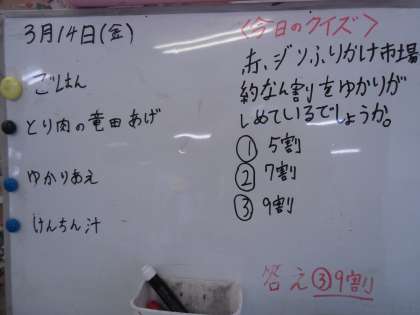 3月14日(金)
ごはん
とり肉の竜田あげ
ゆかりあえ
けんちん汁
〈今日のクイズ〉
赤ジソふりかけ市場
約なん割りをゆかりが
しめているでしょうか。
① 5割
② 7割
③ 9割
答え③9割